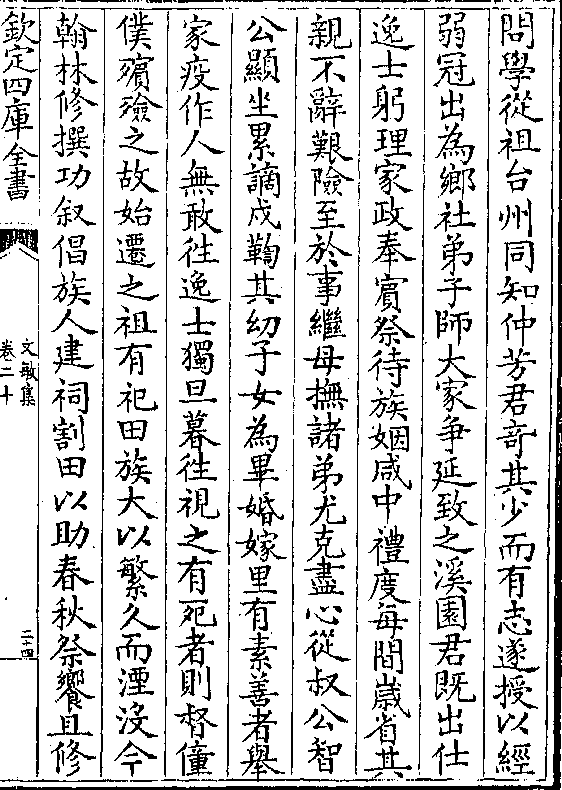 問學從祖台州同知仲芳君竒其少而有志遂授以經
弱冠出為鄉社弟子師大家争延致之溪園君既出仕
逸士躬理家政奉賔祭待族姻咸中禮度每間歲省其
親不辭艱險至於事繼母撫諸弟尤克盡心從叔公智
公顯坐累謫戍鞠其幼子女為畢婚嫁里有素善者舉
家疫作人無敢徃逸士獨旦暮徃視之有死者則督僮
僕殯殮之故始遷之祖有祀田族大以繁久而湮没今
翰林修撰功叙倡族人建祠割田以助春秋祭饗且修
欽定四庫全書
文敏集
卷二十
二十四